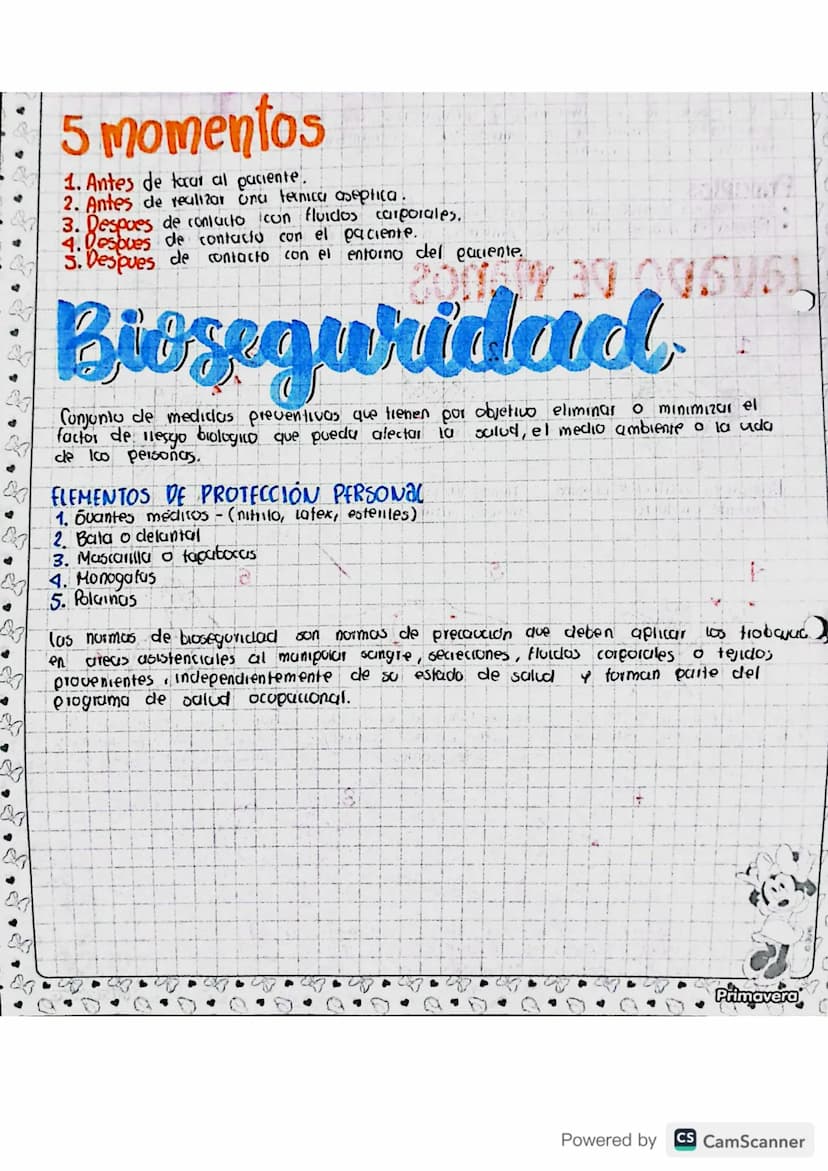 5 momentos
1. Antes de tocar al paciente.
2. Antes de realizar una tecnica aseptica.
3. Despues de contacto con fluidos corporales.
4. Despues de contacto con el paciente.
5. Despues de contacto con el entorno del paciente.
LAVADO DE MANOS
Bioseguridad
Conjunto de medidas preventivas que tienen por objetivo eliminar o minimizar el
factor de riesgo biologico que pueda afectar la salud, el medio ambiente o la vida
de las personas.
ELEMENTOS DE PROTECCIÓN PERSONAL
1. Guantes médicos - (nitrilo, latex, esteriles)
2. Bata o delantal
3. Mascarilla o tapabocas
4. Monogafas
5. Polainas
las normas de bioseguridad son normas de precaución que deben aplicar los
en areas asistenciales al manipular sangre, secreciones, fluidos corporales o tejidos
provenientes, independientemente de su estado de salud y forman parte del
programa de salud ocupacional.
Primavera
Powered by CS CamScanner